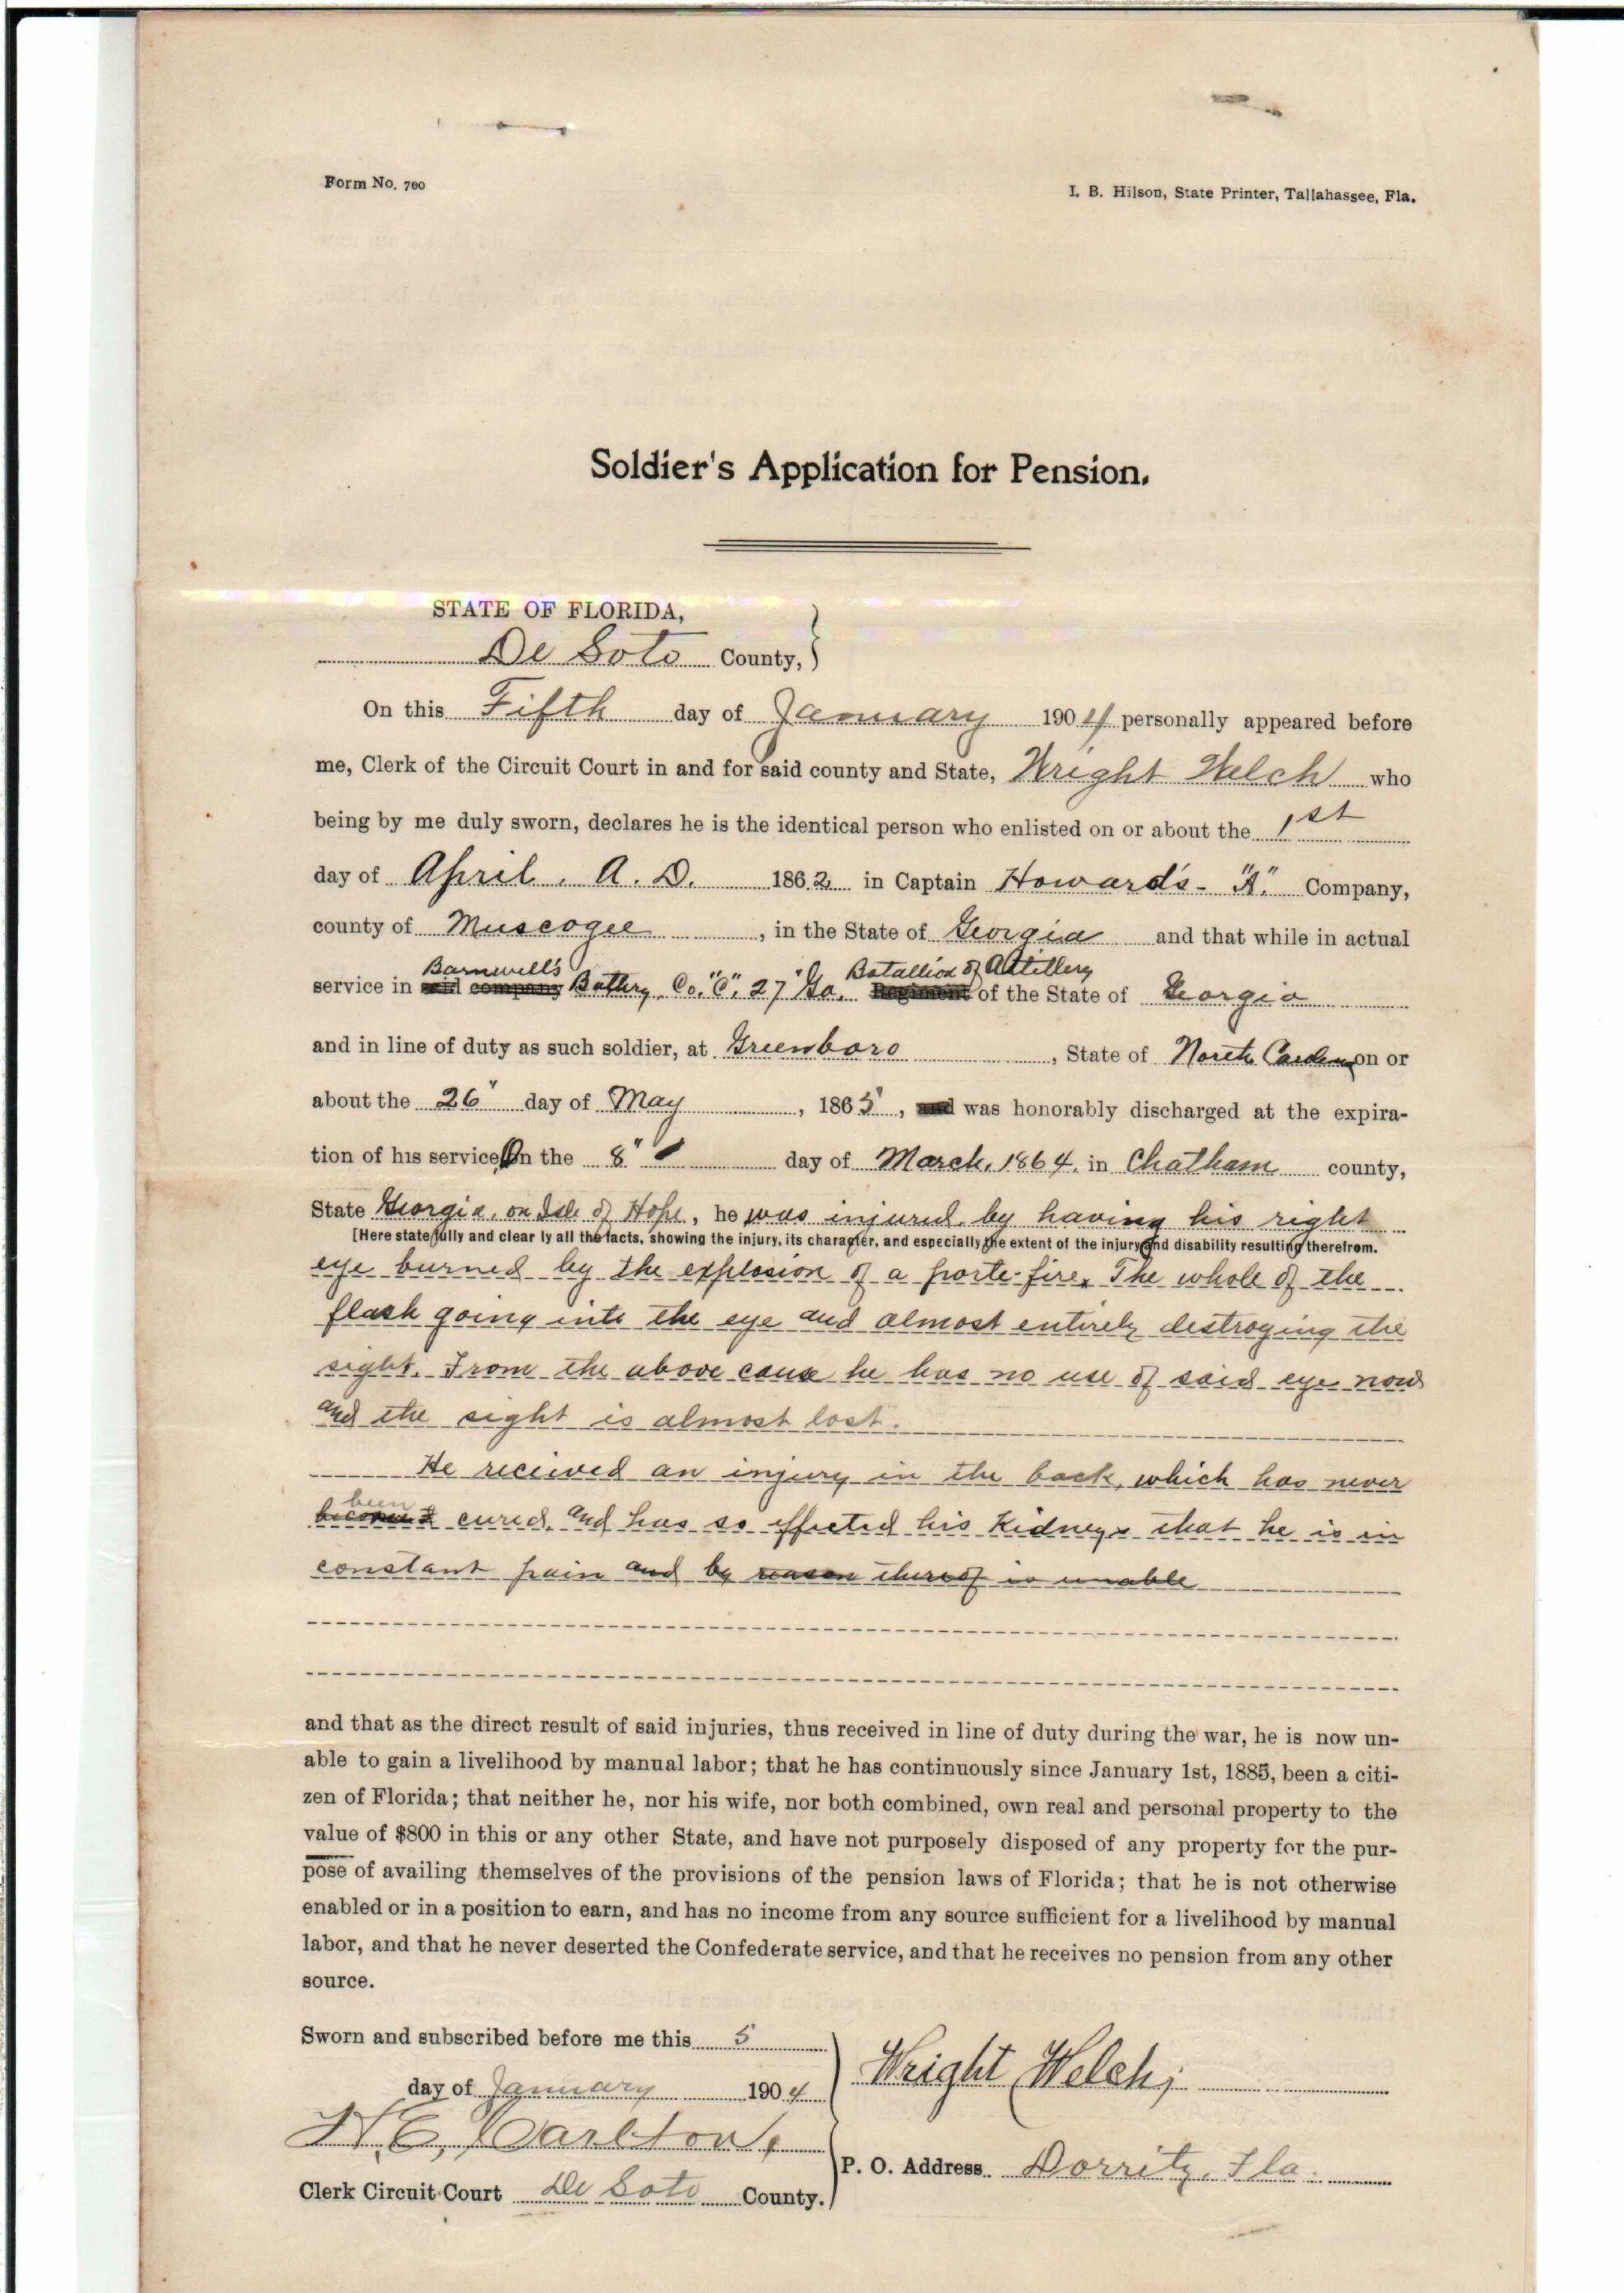 Form No. 760
I. B. Hilson, State Printer, Tallahassee, Fla.
Soldier's Application for Pension.
STATE OF FLORIDA,
De Soto County,
On this Fifth day of January 1904 personally appeared before
me, Clerk of the Circuit Court in and for said county and State, Wright Welch who
being by me duly sworn, declares he is the identical person who enlisted on or about the 1st
day of April. A. D. 1862 in Captain Howard's - "A" Company,
county of Muscogee, in the State of Georgia and that while in actual
Barnwell's Batallion of Artillery
service in said company Battery Co. "C", 27" Ga. Regiment of the State of Georgia
and in line of duty as such soldier, at Greenboro, State of North Carolina on or
about the 26" day of May, 1865, and was honorably discharged at the expira-
tion of his service, On the 8" day of March, 1864. in Chatham county,
State Georgia, on Isle of Hope, he was injured by having his right
[Here state fully and clearly all the facts, showing the injury, its character, and especially the extent of the injury and disability resulting therefrom.
eye burned by the explosion of a porte-fire. The whole of the
flash going into the eye and almost entirely destroying the
sight. From the above cause he has no use of said eye now
and the sight is almost lost.
He received an injury in the back, which has never
been
cured, and has so effected his Kidneys that he is in
constant pain and by reason thereof is unable
and that as the direct result of said injuries, thus received in line of duty during the war, he is now un-
able to gain a livelihood by manual labor; that he has continuously since January 1st, 1885, been a citi-
zen of Florida; that neither he, nor his wife, nor both combined, own real and personal property to the
value of $800 in this or any other State, and have not purposely disposed of any property for the pur-
pose of availing themselves of the provisions of the pension laws of Florida; that he is not otherwise
enabled or in a position to earn, and has no income from any source sufficient for a livelihood by manual
labor, and that he never deserted the Confederate service, and that he receives no pension from any other
source.
Sworn and subscribed before me this 5
day of January 1904
Wright Welch;
H. E. Carlton,
P. O. Address Dorritz, Fla.
Clerk Circuit Court De Soto County.